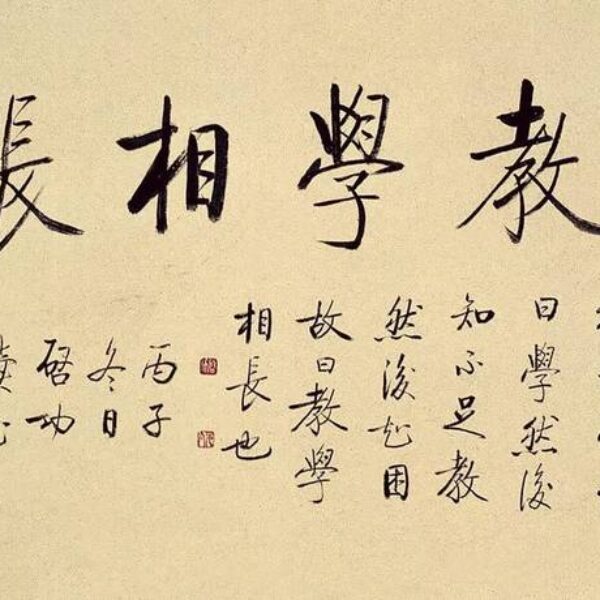 教學相長
曰學然後
知不足教
然後知困
故曰教學
相長也
丙子
冬日
啓功